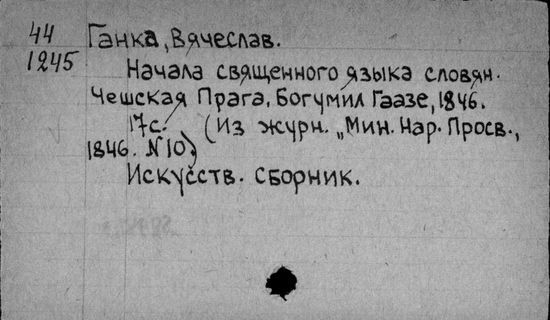 44 Ганка, Вячеслав.
1245
Начала священного языка словян.
Чешская Прага, Богумил Гаазе, 1846.
17с. (Из журн. „Мин. Нар. Просв.,
1846. N10.)
Искусств. сборник.